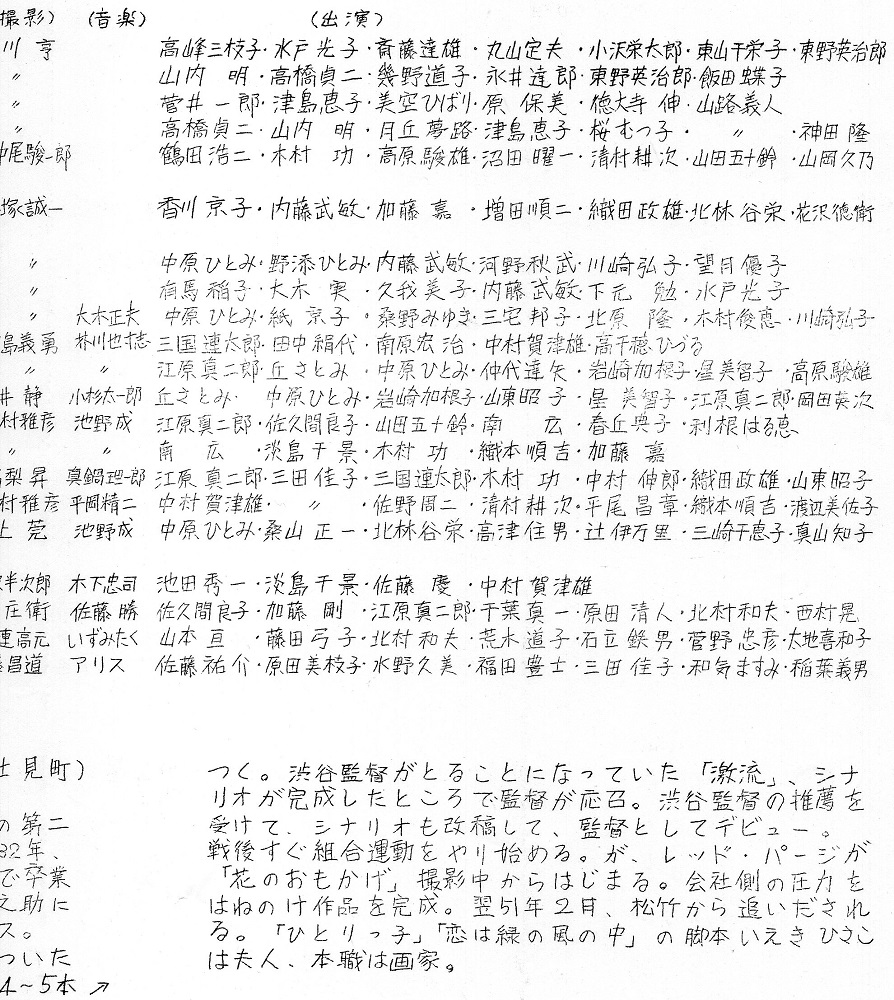 撮影) (音楽) (出演)
川 亨 高峰三枝子・水戸光子・斎藤達雄・丸山定夫・小沢栄太郎・東山千栄子・東野英治郎
〃 山内 明・高橋貞二・幾野道子・永井達郎・東野英治郎・飯田蝶子
〃 菅井一郎・津島恵子・美空ひばり・原 保美・徳大寺 伸・山路義人
〃 高橋貞二・山内 明・月丘夢路・津島恵子・桜むつ子・ 〃 ・神田 隆
中尾駿一郎 鶴田浩二・木村 功・高原駿雄・沼田曜一・清村耕次・山田五十鈴・山岡久乃
塚誠一 香川京子・内藤武敏・加藤 嘉・増田順二・織田政雄・北林谷栄・花沢徳衛
〃 中原ひとみ・野添ひとみ・内藤武敏・河野秋武・川崎弘子・望月優子
〃 有馬稲子・大木 実・久我美子・内藤武敏・下元 勉・水戸光子
〃 大木正夫 中原ひとみ・紙 京子・桑野みゆき・三宅邦子・北原 隆・木村俊恵・川崎弘子
島義勇 芥川也寸志 三国連太郎・田中絹代・南原宏治・中村賀津雄・高千穂ひづる
〃 〃 江原真二郎・丘さとみ・中原ひとみ・仲代達矢・岩崎加根子・星美智子・高原駿雄
井 静 小杉太一郎 丘さとみ・中原ひとみ・岩崎加根子・山東昭子・星 美智子・江原真二郎・岡田英次
村雅彦 池野成 江原真二郎・佐久間良子・山田五十鈴・南 広・春丘典子・利根はる恵
〃 〃 南 広・淡島千景・木村 功・織本順吉・加藤 嘉
梨昇 真鍋理一郎 江原真二郎・三田佳子・三国連太郎・木村 功・中村伸郎・織田政雄・山東昭子
村雅彦 平岡精二 中村賀津雄・ 〃 ・佐野周二・清村耕次・平尾昌章・織本順吉・渡辺美佐子
上 莞 池野成 中原ひとみ・桑山正一・北林谷栄・高津住男・辻伊万里・三崎千恵子・真山知子
半次郎 木下忠司 池田秀一・淡島千景・佐藤 慶・中村賀津雄
庄衛 佐藤勝 佐久間良子・加藤 剛・江原真二郎・千葉真一・原田清人・北村和夫・西村晃
連高元 いずみたく 山本亘・藤田弓子・北村和夫・荒木道子・石立鉄男・菅野忠彦・太地喜和子
昌道 アリス 佐藤祐介・原田美枝子・水野久美・福田豊士・三田佳子・和気ますみ・稲葉義男
士見町)
の第二
32年、
で卒業
之助に
ス。
ついた
4~5本 ↗
つく。渋谷監督がとることになっていた「激流」、シナ
リオが完成したところで監督が応召。渋谷監督の推薦を
受けて、シナリオも改稿して、監督としてデビュー。
戦後すぐ組合運動をやり始める。が、レッド・パージが
「花のおもかげ」撮影中からはじまる。会社側の圧力を
はねのけ作品を完成。翌51年2月、松竹から追いだされ
る。「ひとりっ子」「恋は緑の風の中」の脚本いえきひさこ
は夫人、本職は画家。